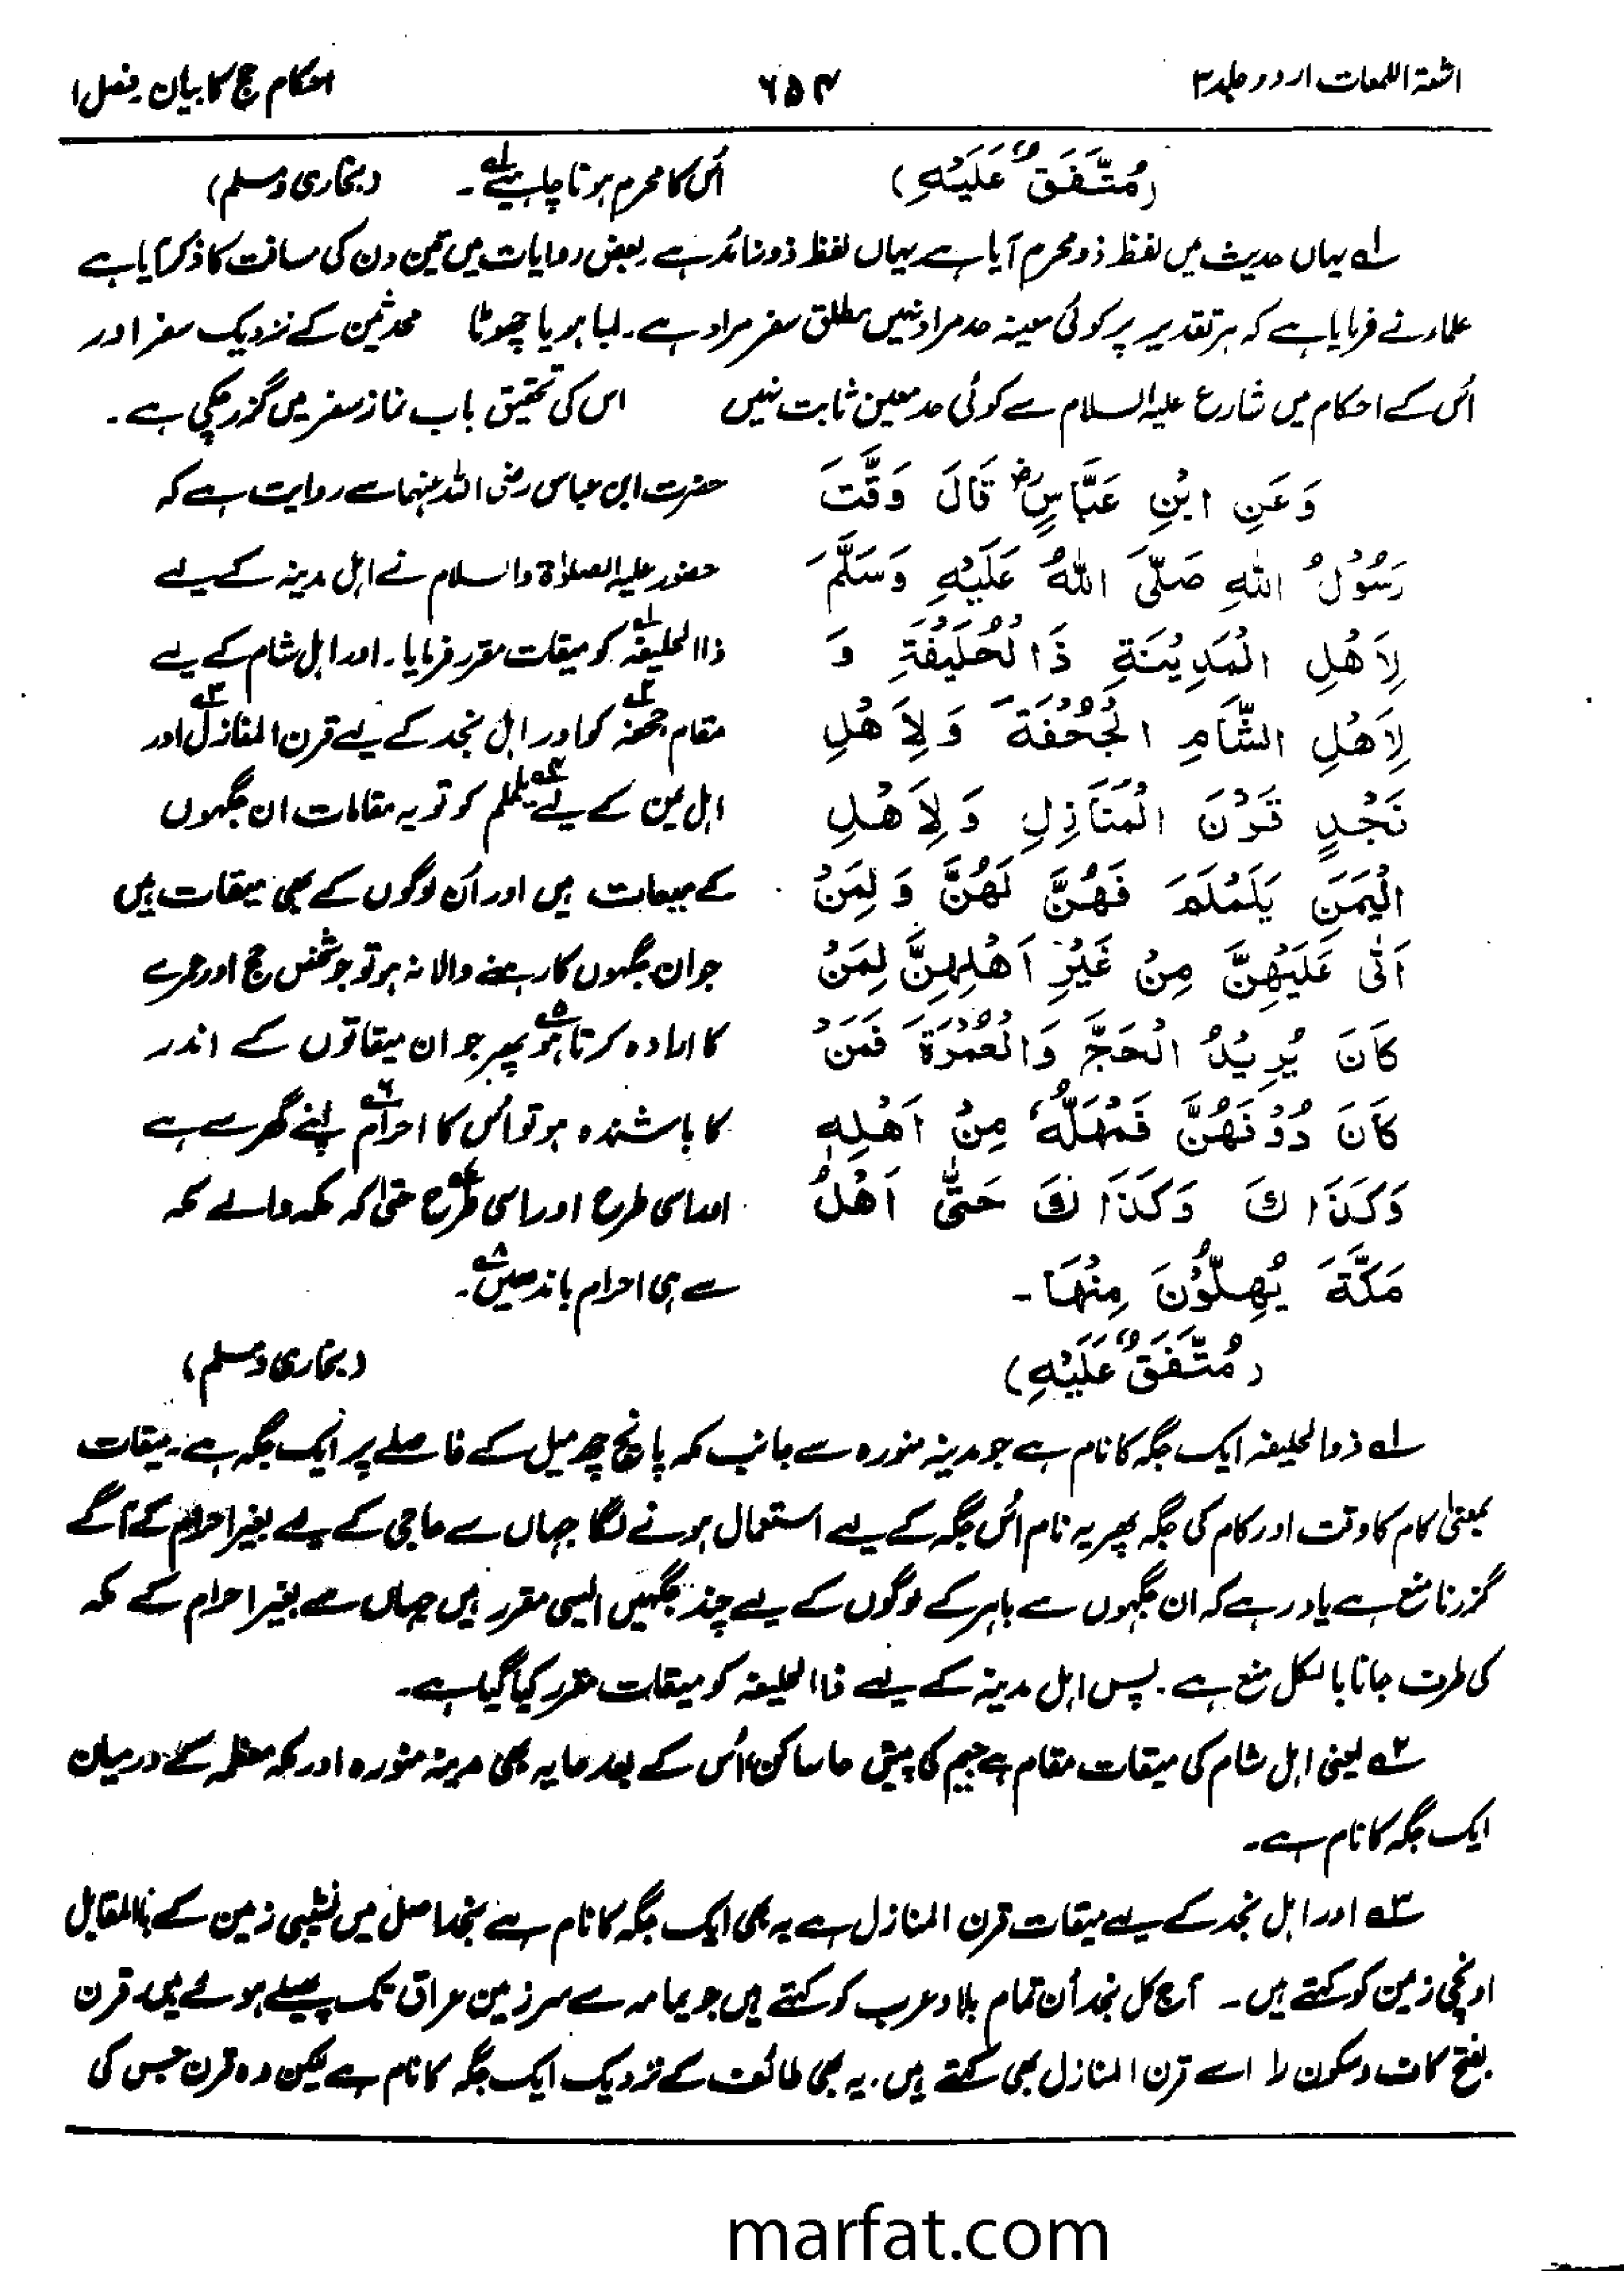 اشعۃ اللمعات اردو جلد ۳
۶۵۴
احکام حج کا بیان فصل ۱
(مُتَّفَقٌ عَلَيْهِ)
اُس کا محرم ہونا چاہیے ۱؎۔ (بخاری و مسلم)
۱؎ یہاں حدیث میں لفظ ذو محرم آیا ہے یہاں لفظ ذو زائد ہے بعض روایات میں تین دن کی مسافت کا ذکر آیا ہے
علماء نے فرمایا ہے کہ ہر تقدیر پر کوئی معینہ حد مراد نہیں مطلق سفر مراد ہے۔ لمبا ہو یا چھوٹا محدثین کے نزدیک سفر اور
اُس کے احکام میں شارع علیہ السلام سے کوئی حد معین ثابت نہیں اس کی تحقیق باب نماز سفر میں گزر چکی ہے۔
وَعَنِ ابْنِ عَبَّاسٍ رض قَالَ وَقَّتَ
رَسُوْلُ اللهِ صَلَّى اللهُ عَلَيْهِ وَسَلَّمَ
لِاَهْلِ الْمَدِيْنَةِ ذَا الْحُلَيْفَةِ وَ
لِاَهْلِ الشَّامِ الْجُحْفَةَ وَلِاَهْلِ
نَجْدٍ قَرْنَ الْمَنَازِلِ وَلِاَهْلِ
الْيَمَنِ يَلَمْلَمَ فَهُنَّ لَهُنَّ وَلِمَنْ
اَتٰى عَلَيْهِنَّ مِنْ غَيْرِ اَهْلِهِنَّ لِمَنْ
كَانَ يُرِيْدُ الْحَجَّ وَالْعُمْرَةَ فَمَنْ
كَانَ دُوْنَهُنَّ فَمُهَلُّهٗ مِنْ اَهْلِهٖ
وَكَذَاكَ وَكَذَاكَ حَتّٰى اَهْلُ
مَكَّةَ يُهِلُّوْنَ مِنْهَا۔
(مُتَّفَقٌ عَلَيْهِ)
حضرت ابن عباس رضی اللہ عنہما سے روایت ہے کہ
حضور علیہ الصلوٰۃ والسلام نے اہل مدینہ کے لیے
ذا الحلیفہ ۱؎ کو میقات مقرر فرمایا۔ اور اہل شام کے لیے
مقام جحفہ ۲؎ کو اور اہل نجد کے لیے قرن المنازل ۳؎ اور
اہل یمن کے لیے یلملم ۴؎ کو تو یہ مقامات ان جگہوں
کے میقات ہیں اور اُن لوگوں کے بھی میقات ہیں
جو ان جگہوں کا رہنے والا نہ ہو تو جو شخص حج اور عمرے
کا ارادہ کرتا ہو ۵؎ پھر جو ان میقاتوں کے اندر
کا باشندہ ہو تو اُس کا احرام ۶؎ اپنے گھر سے ہے
اور اسی طرح اور اسی طرح ۷؎ حتیٰ کہ مکہ والے مکہ
سے ہی احرام باندھیں ۸؎۔
(بخاری و مسلم)
۱؎ ذوالحلیفہ ایک جگہ کا نام ہے جو مدینہ منورہ سے جانب مکہ پانچ چھ میل کے فاصلے پر ایک جگہ ہے۔ میقات
بمعنیٰ کام کا وقت اور کام کی جگہ پھر یہ نام اُس جگہ کے لیے استعمال ہونے لگا جہاں سے حاجی کے لیے بغیر احرام کے آگے
گزرنا منع ہے یاد رہے کہ ان جگہوں سے باہر کے لوگوں کے لیے چند جگہیں ایسی مقرر ہیں جہاں سے بغیر احرام کے مکہ
کی طرف جانا بالکل منع ہے۔ پس اہل مدینہ کے لیے ذا الحلیفہ کو میقات مقرر کیا گیا ہے۔
۲؎ یعنی اہل شام کی میقات مقام ہے جیم کی پیش حا ساکن، اُس کے بعد حا یہ بھی مدینہ منورہ اور مکہ معظمہ کے درمیان
ایک جگہ کا نام ہے۔
۳؎ اور اہل نجد کے لیے میقات قرن المنازل ہے یہ بھی ایک جگہ کا نام ہے نجد اصل میں نشیبی زمین کے بالمقابل
اونچی زمین کو کہتے ہیں۔ آج کل نجد اُن تمام بلاد عرب کو کہتے ہیں جو یمامہ سے سرزمین عراق تک پھیلے ہوئے ہیں، قرن
بفتح کاف و سکون را اسے قرن المنازل بھی کہتے ہیں۔ یہ بھی طائف کے نزدیک ایک جگہ کا نام ہے لیکن وہ قرن جس کی
marfat.com